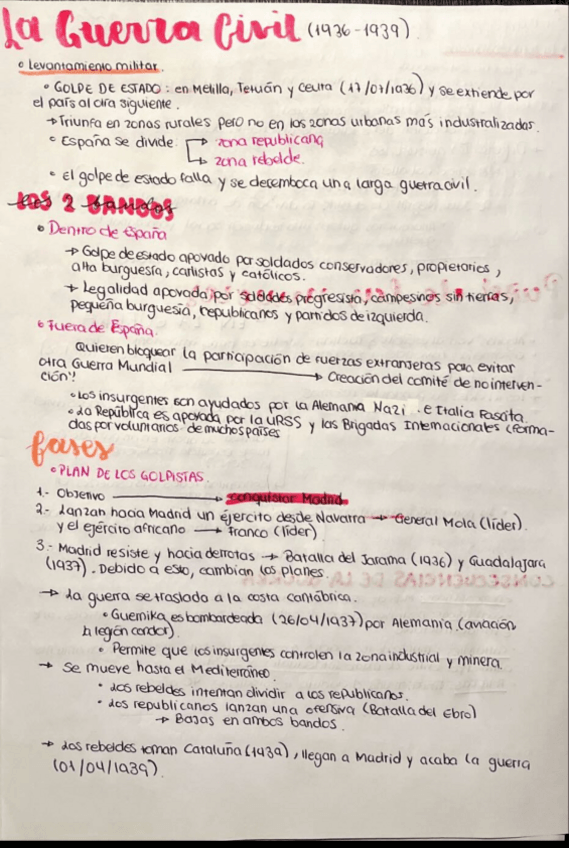 La Guerra Civil (1936-1939)
• Levantamiento militar.
• GOLPE DE ESTADO: en Melilla, Tetuán y Ceuta (17/07/1936) y se extiende por
el país al día siguiente.
→ Triunfa en zonas rurales pero no en las zonas urbanas más industrializadas.
• España se divide: → zona republicana
→ zona rebelde.
• El golpe de estado falla y se desemboca una larga guerra civil.
LOS 2 BANDOS
• Dentro de España
→ Golpe de estado apoyado por soldados conservadores, propietarios,
alta burguesía, carlistas y católicos.
→ Legalidad apoyada por soldados progresista, campesinos sin tierras,
pequeña burguesía, republicanos y partidos de izquierda.
• Fuera de España.
Quieren bloquear la participación de fuerzas extranjeras para evitar
otra Guerra Mundial → Creación del comité de no interven-
ción!!
• Los insurgentes son ayudados por la Alemania Nazi e Italia Fascita
• La República es apoyada por la URSS y las Brigadas Internacionales (forma-
das por voluntarios de muchos países
fases
• PLAN DE LOS GOLPISTAS.
1.- Objetivo → conquistar Madrid
2.- Lanzan hacia Madrid un ejercito desde Navarra → General Mola (líder)
y el ejército africano → Franco (líder)
3.- Madrid resiste y hacia derrotas → Batalla del Jarama (1936) y Guadalajara
(1937). Debido a esto, cambian los planes.
→ La guerra se traslada a la costa cantábrica.
• Guernika es bombardeada (26/04/1937) por Alemania (aviación
la legión condor).
• Permite que los insurgentes controlen la zona industrial y minera.
→ Se mueve hasta el Mediterráneo.
• Los rebeldes intentan dividir a los republicanos.
• Los republicanos lanzan una ofensiva (Batalla del Ebro)
→ Bajas en ambos bandos.
→ Los rebeldes toman Cataluña (1939), llegan a Madrid y acaba la guerra
(01/04/1939)